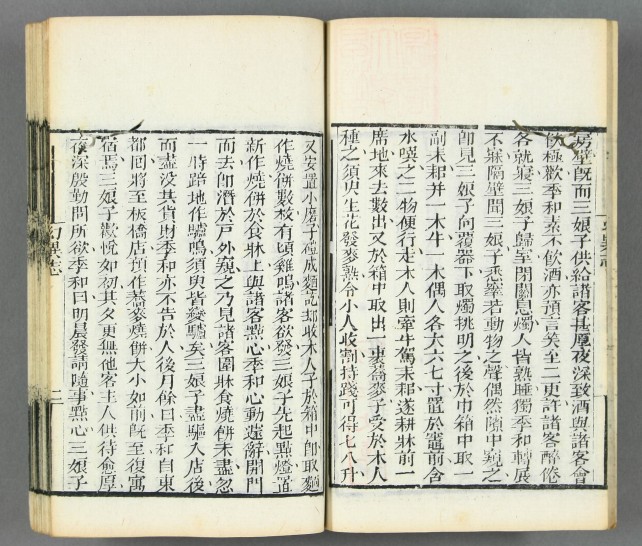 房壁旣而三娘子供給諸客甚厚夜深致酒與諸客會
飲極歡季和素不飲酒亦預言笑至二更許諸客醉倦
各就寢三娘子歸室閉關息燭人皆熟睡獨季和轉展
不寐隔壁聞三娘子悉窣若動物之聲偶然隙中窺之
卽見三娘子向覆器下取燭挑明之後於巾箱中取一
副耒耜并一木牛一木偶人各大六七寸置於竈前含
水噀之二物便行走木人則牽牛駕耒耜遂耕牀前一
席地來去數出又於箱中取出一裹蕎麥子受於木人
種之須臾生花發麥熟令小人收割持踐可得七八升
又安置小磨子磑成麵訖却收木人子於箱中卽取麵
作燒餅數枚有頃雞鳴諸客欲發三娘子先起點燈置
新作燒餅於食牀上與諸客點心季和心動遽辭開門
而去卽潛於戶外窺之乃見諸客圍牀食燒餅未盡忽
一時踣地作驢鳴須臾皆變驢矣三娘子盡驅入店後
而盡沒其貨財季和亦不告於人後月餘日季和自東
都回將至板橋店預作蕎麥燒餅大小如前旣至復寓
宿焉三娘子歡悅如初其夕更無他客主人供待愈厚
夜深殷勤問所欲季和曰明晨發請隨事點心三娘子
幻異志
二